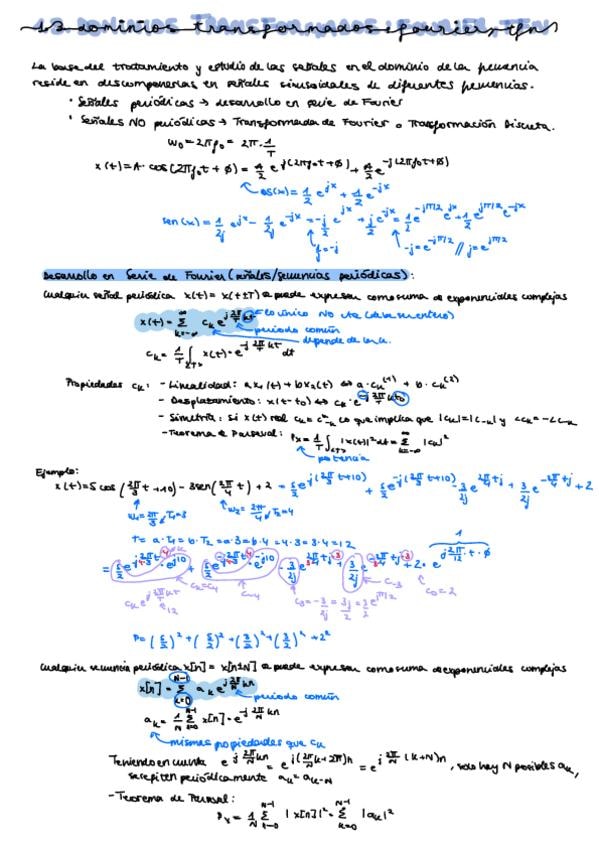 1.3 dominios transformados: fourier, tfn
La base del tratamiento y estudio de las señales en el dominio de la frecuencia
reside en descomponerlas en señales sinusoidales de diferentes frecuencias.
· Señales periódicas → desarrollo en serie de Fourier
· Señales NO periódicas → Transformada de Fourier o Trasformación Discreta.
ω₀ = 2πf₀ = 2π · 1/T
x(t) = A · cos(2πf₀t + φ) = A/2 e^{j(2πf₀t+φ)} + A/2 e^{-j(2πf₀t+φ)}
cos(x) = 1/2 e^{jx} + 1/2 e^{-jx}
sen(x) = 1/2j e^{jx} - 1/2j e^{-jx} = -j/2 e^{jx} + j/2 e^{-jx} = 1/2 e^{-jπ/2} e^{jx} + 1/2 e^{jπ/2} e^{-jx}
1/j = -j
-j = e^{-jπ/2} // j = e^{jπ/2}
Desarrollo en Serie de Fourier (señales/secuencias periódicas):
Cualquier señal periódica x(t) = x(t±T) se puede expresar como suma de exponenciales complejas
x(t) = Σ_{k=-∞}^{∞} c_k e^{j 2π/T kt}
lo único NO cte (debe ser entero)
periodo común
depende de la k.
c_k = 1/T ∫_{<T>} x(t) · e^{-j 2π/T kt} dt
Propiedades c_k: - Linealidad: a x₁(t) + b x₂(t) ↔ a · c_k^{(1)} + b · c_k^{(2)}
- Desplazamiento: x(t-t₀) ↔ c_k · e^{-j 2π/T k t₀}
- Simetría: Si x(t) real c_k = c*_{-k} lo que implica que |c_k| = |c_{-k}| y ∠c_k = -∠c_{-k}
- Teorema de Parseval: P_x = 1/T ∫_{<T>} |x(t)|² dt = Σ_{k=-∞}^{∞} |c_k|²
potencia
Ejemplo:
x(t) = 5 cos(2π/3 t + 10) - 3 sen(2π/4 t) + 2 = 5/2 e^{j(2π/3 t+10)} + 5/2 e^{-j(2π/3 t+10)} - 3/2j e^{2π/4 t j} + 3/2j e^{-2π/4 t j} + 2
ω₁ = 2π/3, T₁ = 3
ω₂ = 2π/4, T₂ = 4
T = a · T₁ = b · T₂ = a · 3 = b · 4 = 4 · 3 = 3 · 4 = 12
1
= 5/2 e^{j 2π/3 t · 4/4} · e^{j10} + 5/2 e^{-j 2π/3 t · 4/4} · e^{-j10} - 3/2j e^{2π/4 t j · 3/3} + 3/2j e^{-2π/4 t j · 3/3} + 2 · e^{j 2π/12 t · 0}
c_k = c₄
c₋₄
c₋₃
c₀ = 2
c_k e^{j 2π/12 kt}
c₃ = -3/2j = 3j/2 = 3/2 e^{jπ/2}
P = (5/2)² + (5/2)² + (3/2)² + (3/2)² + 2²
Cualquier secuencia periódica x[n] = x[n±N] se puede expresar como suma de exponenciales complejas
x[n] = Σ_{k=0}^{N-1} a_k e^{j 2π/N kn}
periodo común
a_k = 1/N Σ_{n=0}^{N-1} x[n] · e^{-j 2π/N kn}
mismas propiedades que c_k
Teniendo en cuenta e^{j 2π/N kn} = e^{j(2π/N k+2π)n} = e^{j 2π/N (k+N)n}, solo hay N posibles a_k,
se repiten periódicamente a_k = a_{k-N}
- Teorema de Parseval:
P_x = 1/N Σ_{n=0}^{N-1} |x[n]|² = Σ_{k=0}^{N-1} |a_k|²